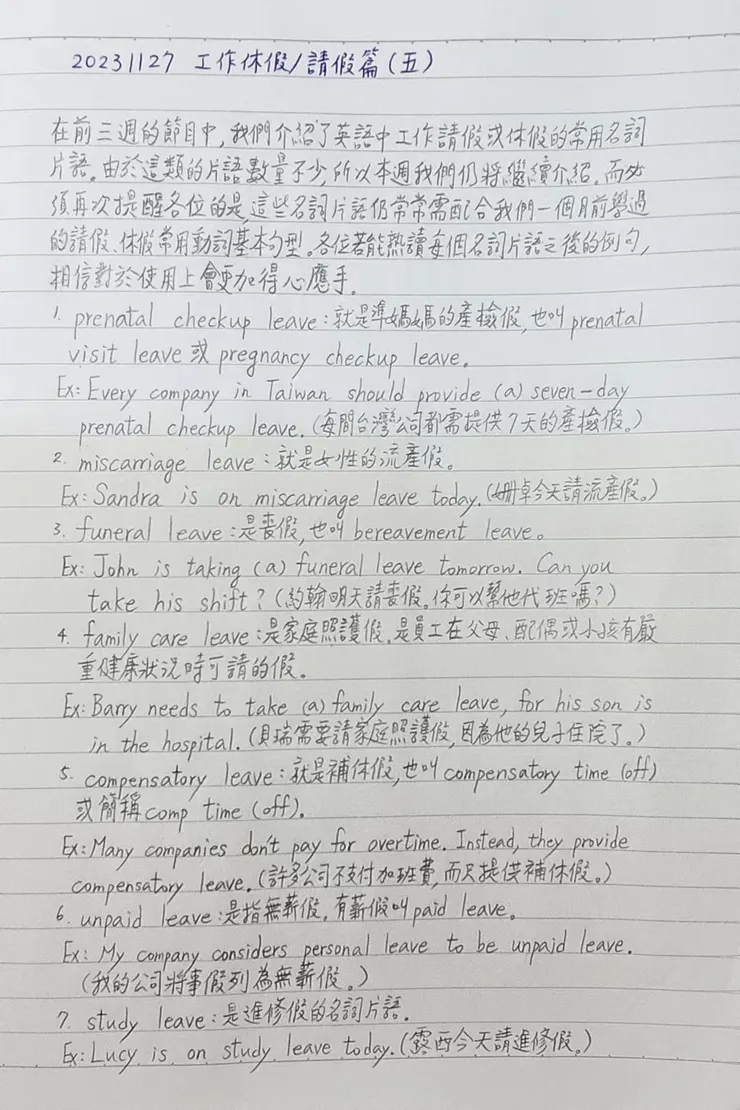 20231127 工作休假/請假篇(五)
在前三週的節目中,我們介紹了英語中工作請假或休假的常用名詞
片語。由於這類的片語數量不少,所以本週我們仍將繼續介紹。而必
須再次提醒各位的是,這些名詞片語仍常常需配合我們一個月前學過
的請假、休假常用動詞基本句型。各位若能熟讀每個名詞片語之後的例句,
相信對於使用上會更加得心應手。
1. prenatal checkup leave:就是準媽媽的產檢假,也叫 prenatal
visit leave 或 pregnancy checkup leave。
Ex: Every company in Taiwan should provide (a) seven-day
prenatal checkup leave.(每間台灣公司都需提供7天的產檢假。)
2. miscarriage leave:就是女性的流產假。
Ex: Sandra is on miscarriage leave today.(姍卓今天請流產假。)
3. funeral leave:是喪假,也叫 bereavement leave。
Ex: John is taking (a) funeral leave tomorrow. Can you
take his shift?(約翰明天請喪假。你可以幫他代班嗎?)
4. family care leave:是家庭照護假,是員工在父母、配偶或小孩有嚴
重健康狀況時可請的假。
Ex: Barry needs to take (a) family care leave, for his son is
in the hospital.(貝瑞需要請家庭照護假,因為他的兒子住院了。)
5. compensatory leave:就是補休假,也叫 compensatory time (off)
或簡稱 comp time (off)。
Ex: Many companies don't pay for overtime. Instead, they provide
compensatory leave.(許多公司不支付加班費,而只提供補休假。)
6. unpaid leave:是指無薪假。有薪假叫 paid leave。
Ex: My company considers personal leave to be unpaid leave.
(我的公司將事假列為無薪假。)
7. study leave:是進修假的名詞片語。
Ex: Lucy is on study leave today.(露西今天請進修假。)